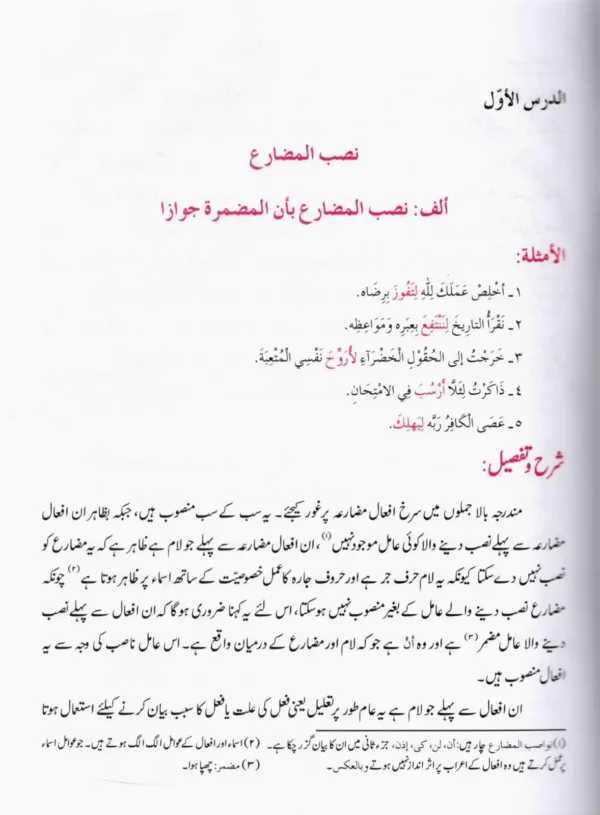 الدرس الأوّل
نصب المضارع
ألف: نصب المضارع بأن المضمرة جوازا
الأمثلة:
١ـ أخْلِصْ عَمَلَكَ لِلّٰهِ لِتَفُوزَ بِرِضَاه.
٢ـ نَقْرَأُ التاريخَ لِنَنْتَفِعَ بِعِبَرِه وَمَوَاعِظِه.
٣ـ خَرَجْتُ إلى الحُقُوْلِ الْخَضْرَآءِ لأُرَوِّحَ نَفْسِي الْمُتْعِبَةَ.
٤ـ ذَاكَرْتُ لِئَلَّا أَرْسُبَ فِي الامْتِحَانِ.
٥ـ عَصَى الْكَافِرُ رَبَّه لِيَهلِكَ.
شرح و تفصیل:
مندرجہ بالا جملوں میں سرخ افعال مضارعہ پر غور کیجئے۔ یہ سب کے سب منصوب ہیں، جبکہ بظاہر ان افعال
مضارعہ سے پہلے نصب دینے والا کوئی عامل موجود نہیں(۱)، ان افعال مضارعہ سے پہلے جو لام ہے ظاہر ہے کہ یہ مضارع کو
نصب نہیں دے سکتا کیونکہ یہ لام حرف جر ہے اور حروف جارہ کا عمل خصوصیّت کے ساتھ اسماء پر ظاہر ہوتا ہے(۲) چونکہ
مضارع نصب دینے والے عامل کے بغیر منصوب نہیں ہوسکتا، اس لئے یہ کہنا ضروری ہوگا کہ ان افعال سے پہلے نصب
دینے والا عامل مضمر(۳) ہے اور وہ أنْ ہے جو کہ لام اور مضارع کے درمیان واقع ہے۔ اس عامل ناصب کی وجہ سے یہ
افعال منصوب ہیں۔
ان افعال سے پہلے جو لام ہے یہ عام طور پر تعلیل یعنی فعل کی علت یا فعل کا سبب بیان کرنے کیلئے استعمال ہوتا
(۱) نواصب المضارع چار ہیں: أن، لن، کی، إذن، جزء ثانی میں ان کا بیان گزر چکا ہے۔ (۲) اسماء اور افعال کے عوامل الگ الگ ہوتے ہیں۔ جو عوامل اسماء
پر عمل کرتے ہیں وہ افعال کے اعراب پر اثر انداز نہیں ہوتے وبالعکس۔ (۳) مضمر: چھپا ہوا۔